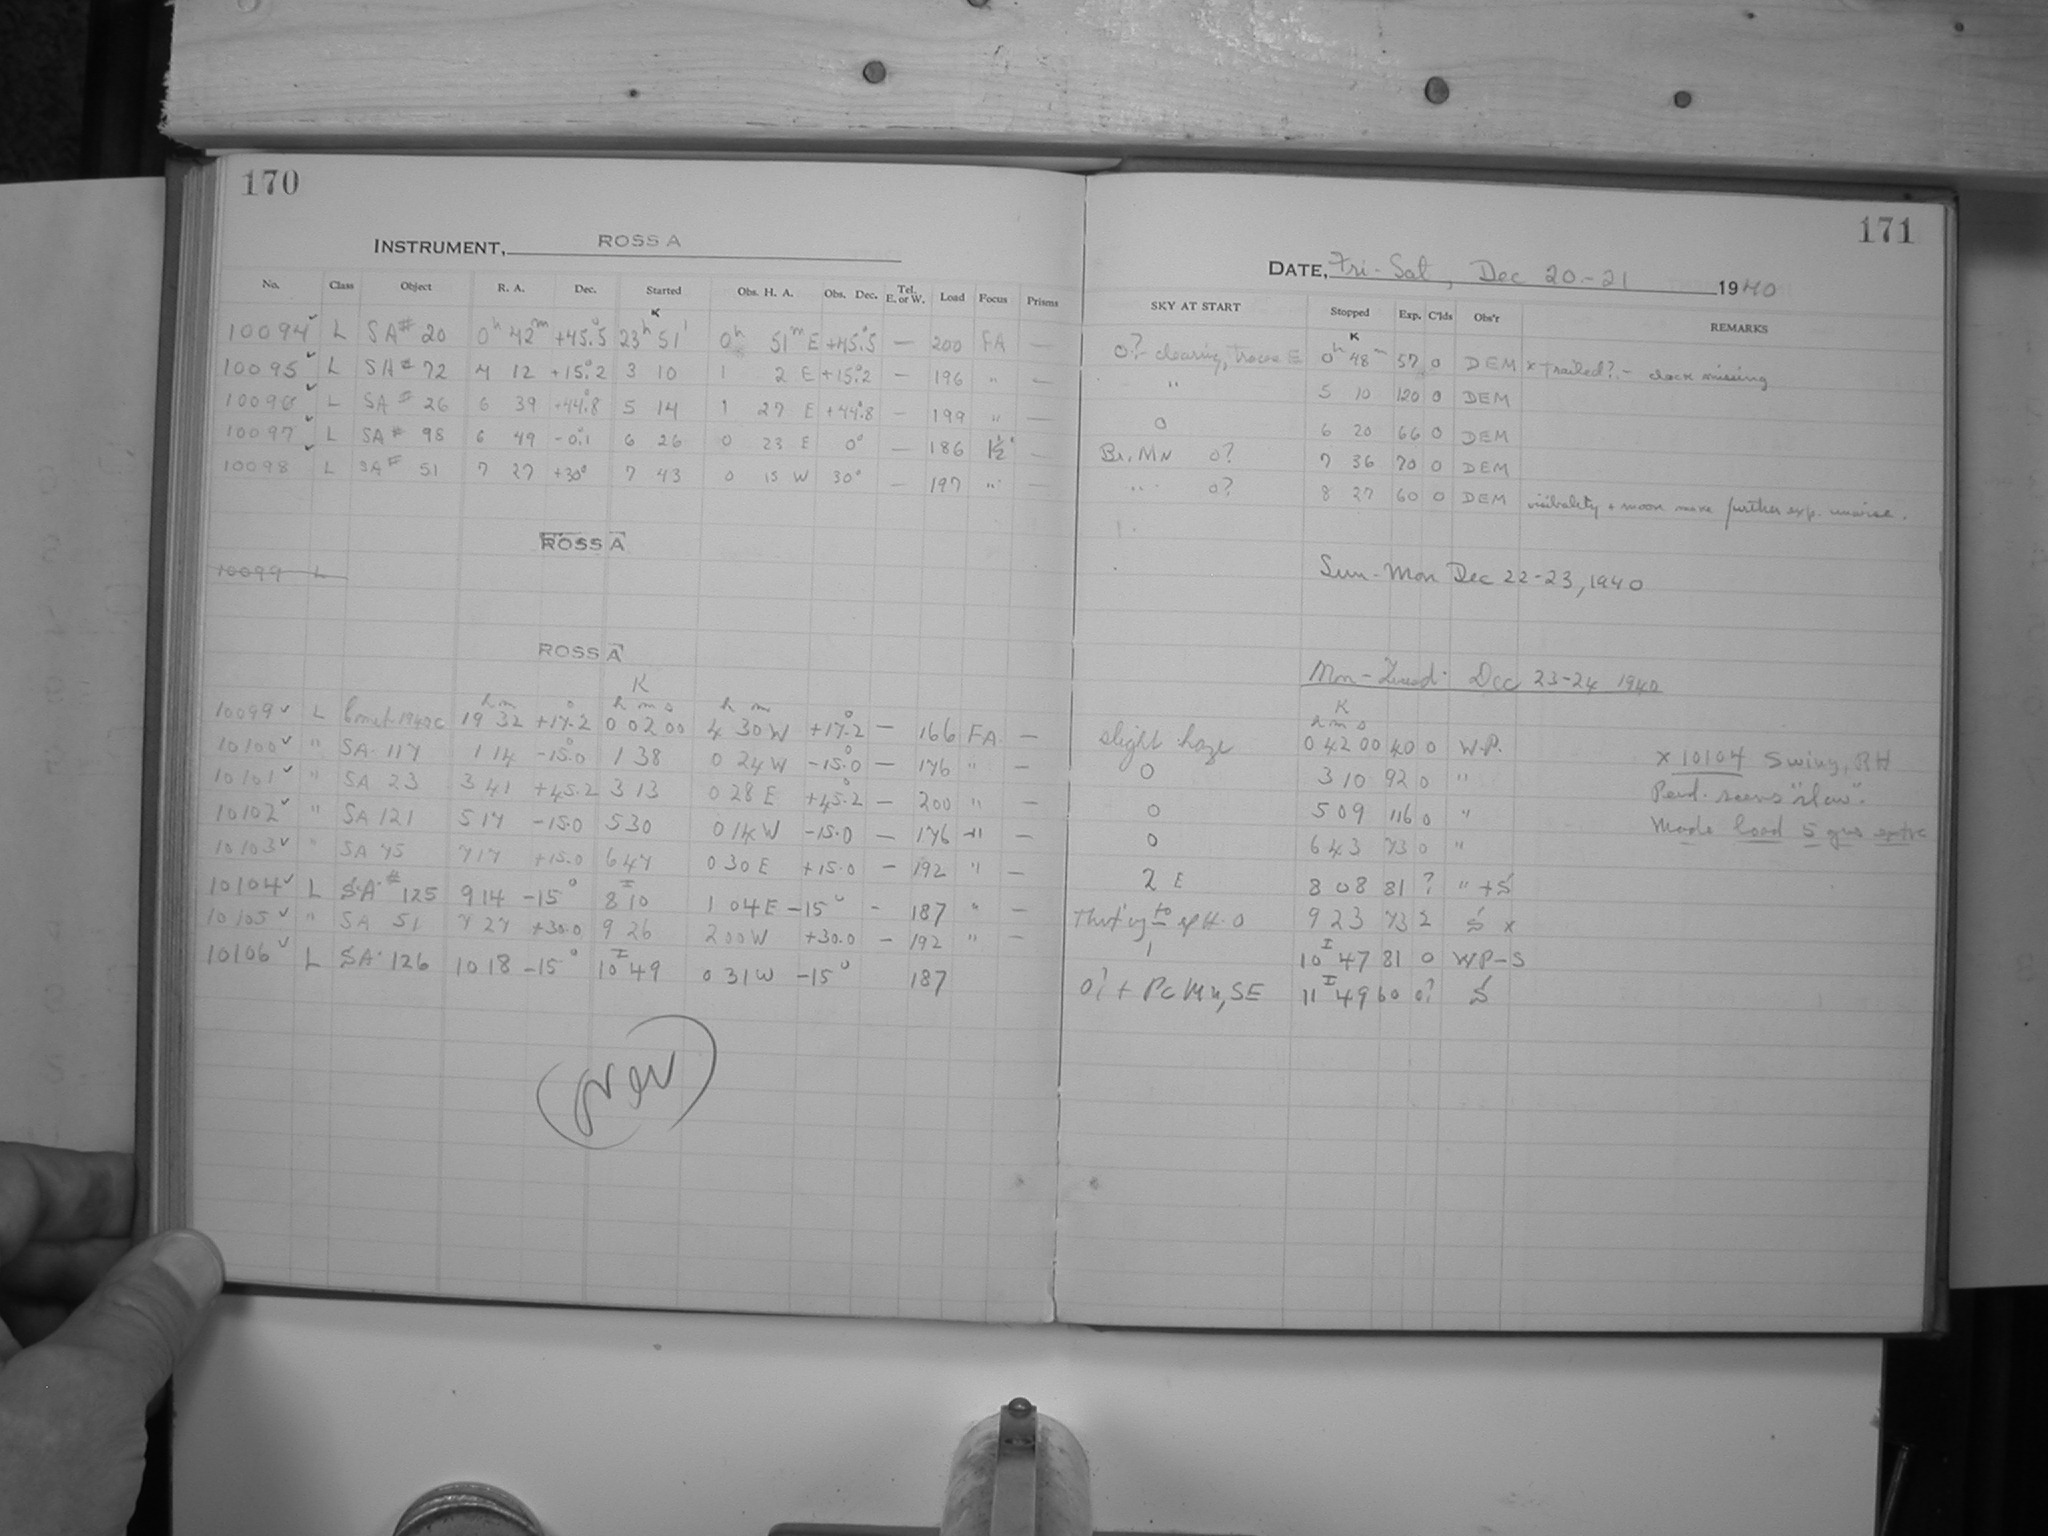 170
INSTRUMENT, ROSS A
No. Class Object R. A. Dec. Started Obs. H. A. Obs. Dec. Tel. E. or W. Load Focus Prisms
K
10094 ✓ L SA# 20 0h 42m +45.°5 23h 51' 0h 51m E +45.°5 — 200 FA —
10095 ✓ L SA# 72 4 12 +15.°2 3 10 1 2 E +15.°2 — 196 " —
10096 ✓ L SA# 26 6 39 +44.°8 5 14 1 27 E +44.°8 — 199 " —
10097 ✓ L SA# 98 6 49 -0.°1 6 26 0 23 E 0° — 186 1½ —
10098 ✓ L SA# 51 7 27 +30° 7 43 0 15 W 30° — 197 " —
ROSS A
10099 L
ROSS A
K
h m ° h m s h m °
10099 ✓ L Comet 1940c 19 32 +17.2 0 02 00 4 30 W +17.2 — 166 FA —
10100 ✓ " SA 117 1 14 -15.0 1 38 0 24 W -15.0 — 176 " —
10101 ✓ " SA 23 3 41 +45.2 3 13 0 28 E +45.2 — 200 " —
10102 ✓ " SA 121 5 17 -15.0 5 30 0 14 W -15.0 — 176 " —
10103 ✓ " SA 75 7 17 +15.0 6 47 0 30 E +15.0 — 192 " —
10104 ✓ L S.A.# 125 9 14 -15° 8 I 10 1 04 E -15° - 187 " —
10105 ✓ " SA 51 7 27 +30.0 9 26 2 00 W +30.0 — 192 " —
10106 ✓ L SA 126 10 18 -15° 10 I 49 0 31 W -15° 187
(over)
171
DATE, Fri - Sat, Dec 20-21 1940
SKY AT START Stopped Exp. C'lds Obs'r REMARKS
K
0? clearing, traces E 0h 48m 57 0 DEM x trailed? - clock missing
" 5 10 120 0 DEM
0 6 20 66 0 DEM
Br. MN 0? 7 36 70 0 DEM
" " 0? 8 27 60 0 DEM visibility + moon make further exp. unwise.
Sun - Mon Dec 22-23, 1940
Mon - Tuesd. Dec 23-24 1940
K
h m s
slight haze 0 42 00 40 0 W.P.
0 3 10 92 0 "
0 5 09 116 0 "
0 6 43 73 0 "
2 E 8 08 81 ? " + S
to 0 9 23 73 2 S x
1 10 I 47 81 0 WP-S
0? + Pc Mn, SE 11 I 49 60 0? S
x 10104 Swing, RH
Pend. seems "slow".
Made load 5 gms extra